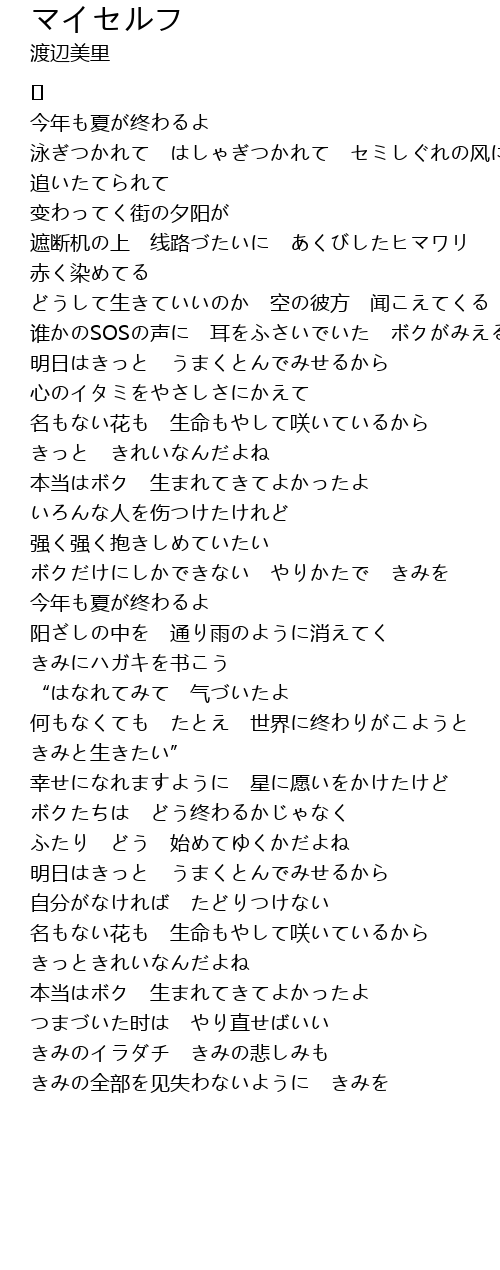 マイセルフ
渡辺美里
[]
今年も夏が终わるよ
泳ぎつかれて　はしゃぎつかれて　セミしぐれの风に
追いたてられて
变わってく街の夕阳が
遮断机の上　线路づたいに　あくびしたヒマワリ
赤く染めてる
どうして生きていいのか　空の彼方　闻こえてくる
谁かのSOSの声に　耳をふさいでいた　ボクがみえる
明日はきっと　うまくとんでみせるから
心のイタミをやさしさにかえて
名もない花も　生命もやして咲いているから
きっと　きれいなんだよね
本当はボク　生まれてきてよかったよ
いろんな人を伤つけたけれど
强く强く抱きしめていたい
ボクだけにしかできない　やりかたで　きみを
今年も夏が终わるよ
阳ざしの中を　通り雨のように消えてく
きみにハガキを书こう
“はなれてみて　气づいたよ
何もなくても　たとえ　世界に终わりがこようと
きみと生きたい”
幸せになれますように　星に愿いをかけたけど
ボクたちは　どう终わるかじゃなく
ふたり　どう　始めてゆくかだよね
明日はきっと　うまくとんでみせるから
自分がなければ　たどりつけない
名もない花も　生命もやして咲いているから
きっときれいなんだよね
本当はボク　生まれてきてよかったよ
つまづいた时は　やり直せばいい
きみのイラダチ　きみの悲しみも
きみの全部を见失わないように　きみを